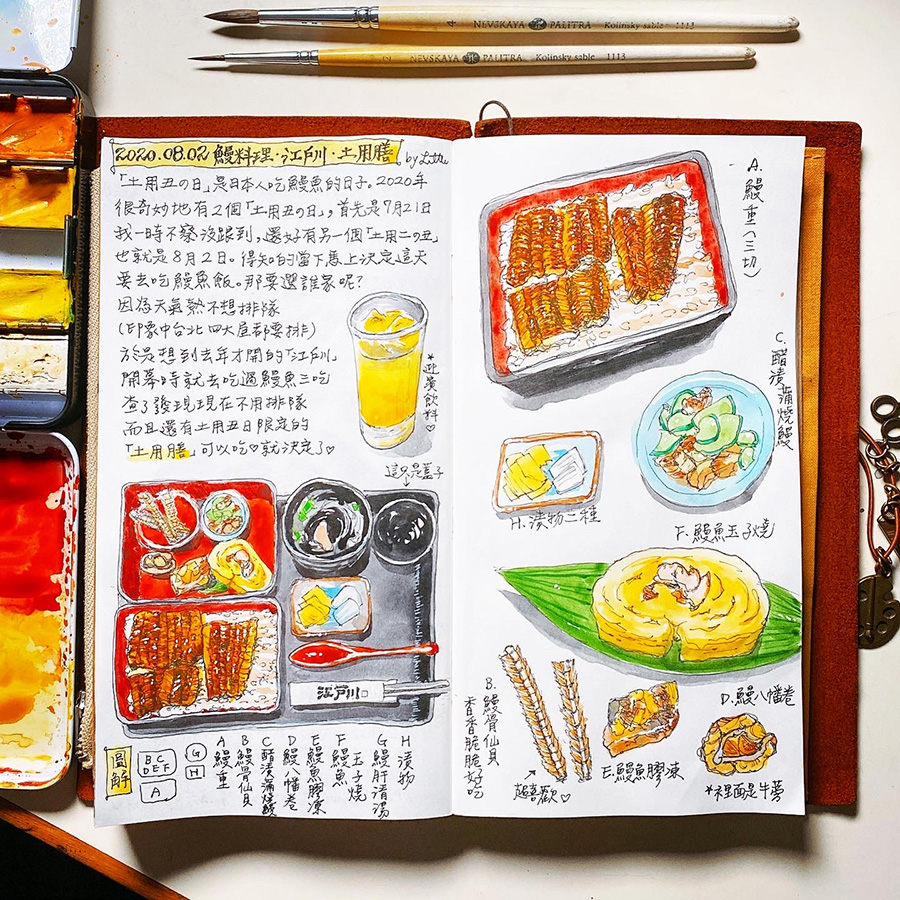 4 NEVSKAYA PALITRA Kolinsky sable 1113
2 NEVSKAYA PALITRA Kolinsky sable 1113
2020.08.02 鰻料理·江戶川·土用膳 by Little
「土用丑の日」是日本人吃鰻魚的日子。2020年
很奇妙地有2個「土用丑の日」,首先是7月21日
我一時不察沒跟到,還好有另一個「土用二の丑」
也就是8月2日。得知的當下馬上決定這天
要去吃鰻魚飯。那要選誰家呢?
因為天氣熱不想排隊
(印象中台北四大屋都要排)
於是想到去年才開的「江戶川」
開幕時就去吃過鰻魚三吃
查了發現現在不用排隊
而且還有土用丑日限定的
「土用膳」可以吃♡就決定了♡
*迎賓飲料♡
這只是蓋子
江戶川
圖解
B C
D E F
A
G
H
A 鰻重
B 鰻骨仙貝
C 醋漬蒲燒鰻
D 鰻八幡卷
E 鰻魚膠凍
F 鰻魚玉子燒
G 鰻肝清湯
H 漬物
A. 鰻重(三切)
C. 醋漬蒲燒鰻
H. 漬物二種
F. 鰻魚玉子燒
B. 鰻骨仙貝
香香脆脆好吃
超喜歡♡
E. 鰻魚膠凍
D. 鰻八幡卷
*裡面是牛蒡